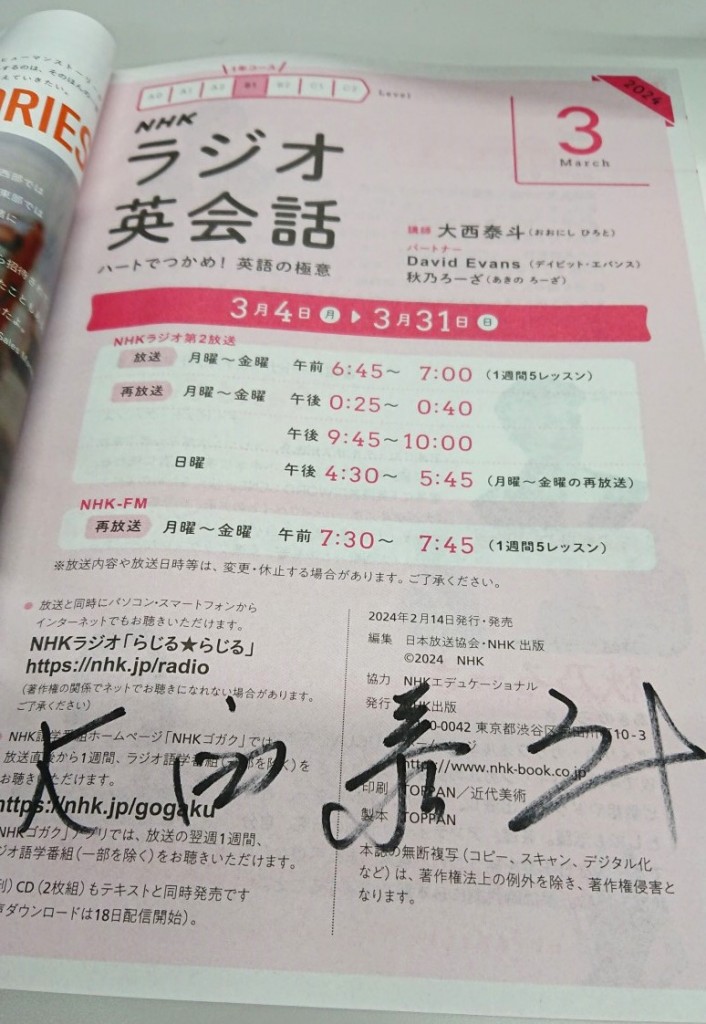 ORIES
1年コース
A0 A1 A2 B1 B2 C1 C2 Level
2024
3
March
NHK
ラジオ
英会話
ハートでつかめ！英語の極意
講師 大西泰斗（おおにし ひろと）
パートナー
David Evans（デイビット・エバンス）
秋乃ろーざ（あきの ろーざ）
3月4日月▶3月31日日
NHKラジオ第2放送
放送 月曜〜金曜 午前 6:45〜 7:00（1週間5レッスン）
再放送 月曜〜金曜 午後 0:25〜 0:40
午後 9:45〜10:00
日曜 午後 4:30〜 5:45（月曜〜金曜の再放送）
NHK-FM
再放送 月曜〜金曜 午前 7:30〜 7:45（1週間5レッスン）
※放送内容や放送日時等は、変更・休止する場合があります。ご了承ください。
●放送と同時にパソコン・スマートフォンから
インターネットでもお聴きいただけます。
NHKラジオ「らじる★らじる」
https://nhk.jp/radio
（著作権の関係でネットでお聴きになれない場合があります。
ご了承ください）
NHK語学番組ホームページ「NHKゴガク」では、
放送直後から1週間、ラジオ語学番組（一部を除く）を
お聴きいただけます。
https://nhk.jp/gogaku
NHKゴガク」アプリでは、放送の翌週1週間、
ジオ語学番組（一部を除く）をお聴きいただけます。
刊）CD（2枚組）もテキストと同時発売です
声ダウンロードは18日配信開始）。
2024年2月14日発行・発売
編集 日本放送協会・NHK 出版
©2024 NHK
協力 NHKエデュケーショナル
発行 NHK出版
0-0042 東京都渋谷区宇田川町10-3
https://www.nhk-book.co.jp
印刷 TOPPAN／近代美術
製本 TOPPAN
本誌の無断複写（コピー、スキャン、デジタル化
など）は、著作権法上の例外を除き、著作権侵害と
なります。
大西泰斗